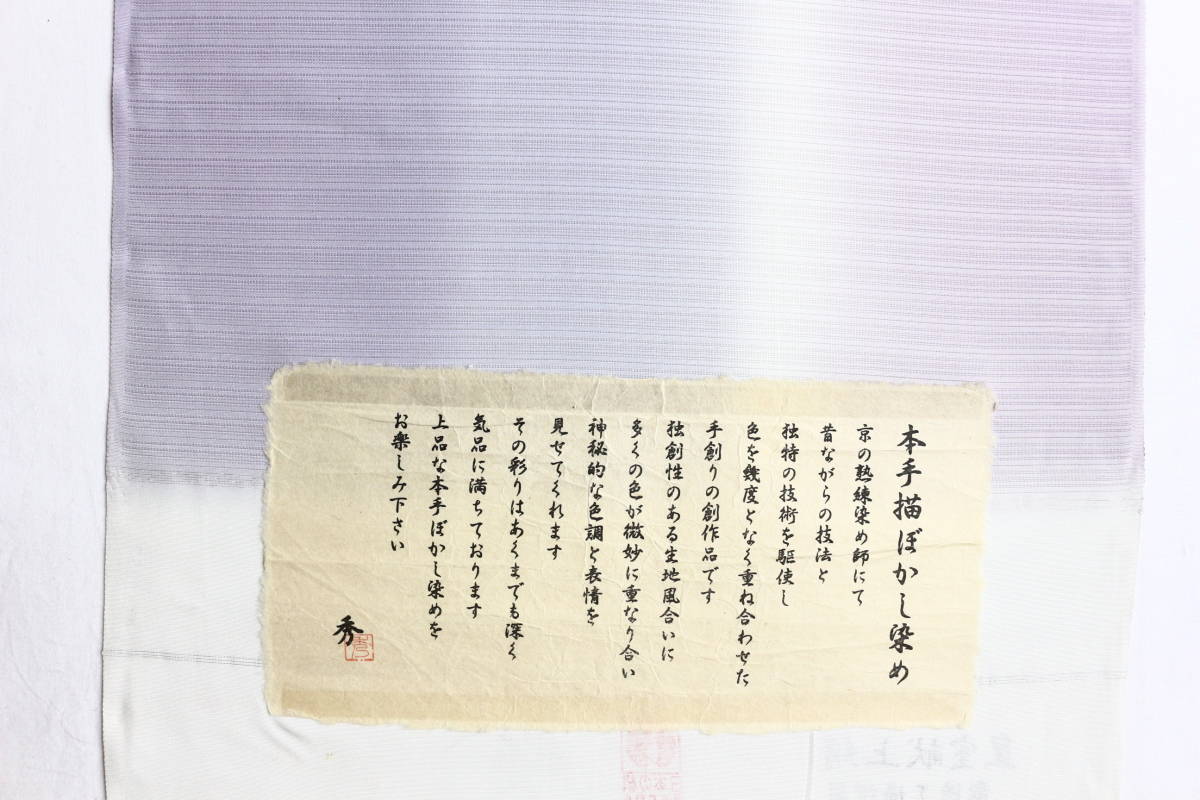 本手描ぼかし染め
京の熟練染め師にて
昔ながらの技法と
独特の技術を駆使し
色を幾度となく重ね合わせた
手創りの創作品です
独創性のある生地風合いに
多くの色が微妙に重なり合い
神秘的な色調と表情を
見せてくれます
その彩りはあくまでも深く
気品に満ちております
上品な本手ぼかし染めを
お楽しみ下さい
秀